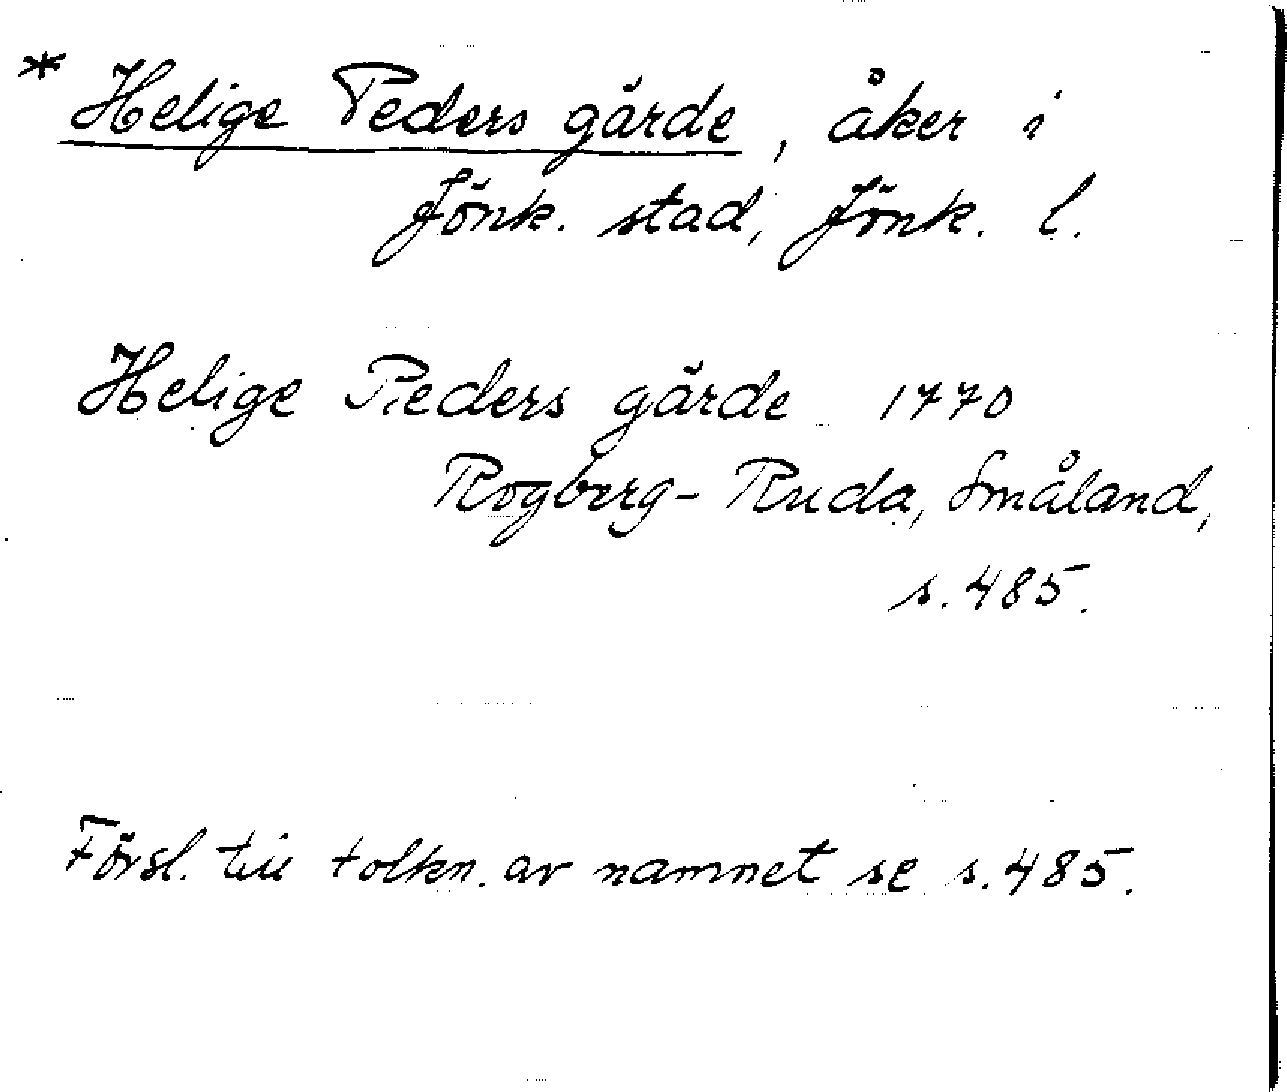 * Helige Peders gärde, åker i
Jönk. stad, Jönk. l.
Helige Peders gärde 1770
Rogberg-Ruda, Småland,
s. 485.
Försl. till tolkn. av namnet se s. 485.